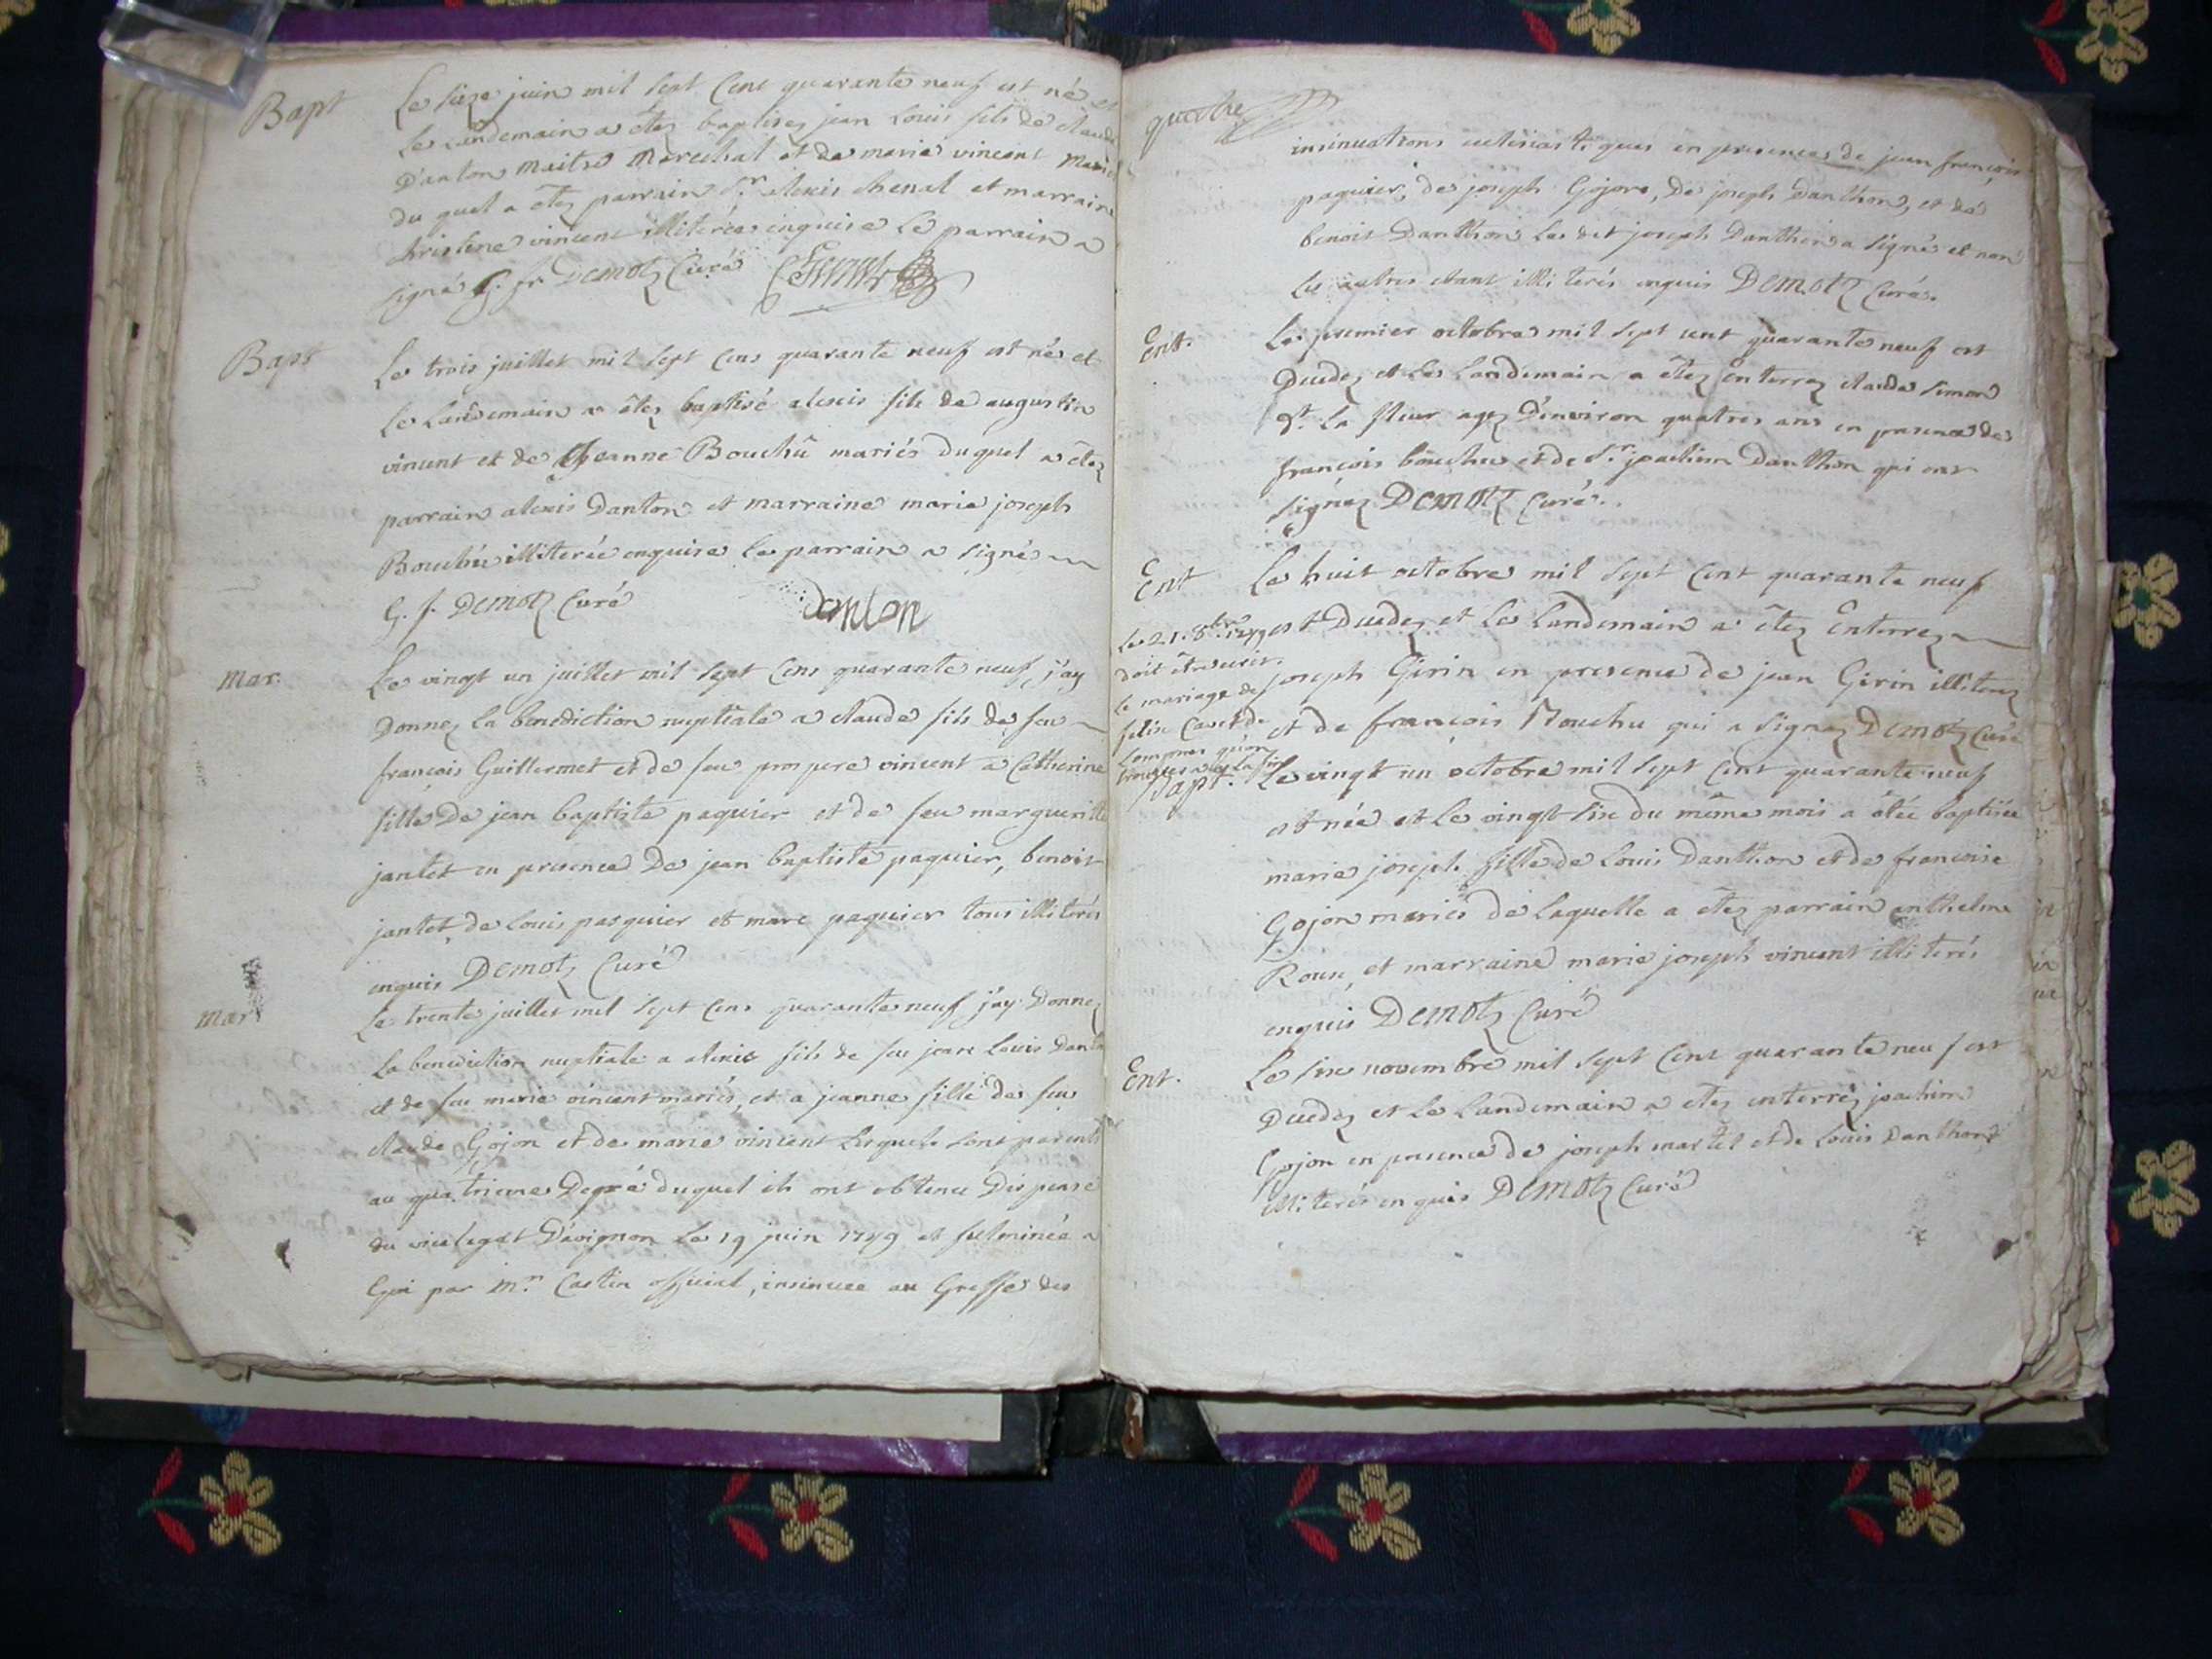 Bapt
Le seize juin mil sept Cens quarante neuf est né et
le Landemain a êtez baptisez jean Louis fils de claude
D'anton Maitre Marechal et de marie vincent Mariés
du quel a êtez parrain Sr. alexis chenal et marraine
christine vincent illiterée enquise le parrain a
signé G. fr. Demotz Curé
Bapt
Le trois juillet mil sept Cens quarante neuf est né et
le Landemain a êtez baptisé alexis fils de augustin
vincent et de Jeanne Bouchû mariés duquel a êtez
parrain alexis Danton et marraine marie joseph
Bouchû illiterée enquise le parrain a signé
G. f. Demotz Curé danton
Mar.
Le vingt un juillet mil sept Cens quarante neuf, j'ay
Donnez la benediction nuptiale a claude fils de feu
françois Guillermet et de feu prospere vincent a Catherine
fille de jean baptiste paquier et de feu margueritte
jantet en presence de jean baptiste paquier, benoit
jantet, de Louis pasquier et marc paquier tous illiterés
enquis Demotz Curé
Mar
Le trente juillet mil sept Cens quarante neuf j'ay Donnez
la benediction nuptiale a alexis fils de feu jean Louis Danton
et de feu marie vincent mariés, et a jeanne fille de feu
claude Gojon et de marie vincent lesquels sont parents
au quatrieme Degré duquel ils ont obtenu Dispense
du vicelegat D'avignon le 19 juin 1749 et fulminée a
par Mr. Castin official, insinuée au Greffe des
quatre
insinuations eclesiastiques en presence de jean françois
paquier, de joseph Gojon, De joseph Danthon, et de
benoit Danthon le dit joseph Danthon a signé et non
les autres etant illiterés enquis Demotz Curé.
Ent.
Le premier octobre mil sept cent quarante neuf est
Decedez et le Landemain a êtez Enterrez claude simon
dt. la fleur agez D'environ quatre ans en presence de
françois bouchu et de Sr. joachim Danthon qui ont
signez Demotz Curé.
Ent
Le huit octobre mil sept Cent quarante neuf
est Decedez et le Landemain a êtez Enterrez
joseph Girin en presence de jean Girin illiterez
et de françois Bouchu qui a signez Demotz Curé
Le 21. 8bre. 1749
doit être ecrit.
le mariage de
felix Cavet de
Lompnes qu'on
trouvera a la fin
Bapt.
Le vingt un octobre mil sept Cent quarante neuf
est née et le vingt six du même mois a êtée baptisée
marie joseph fille de Louis Danthon et de françoise
Gojon mariés de laquelle a êtez parrain anthelme
Roux, et marraine marie joseph vincent illiterés
enquis Demotz Curé
Ent.
Le six novembre mil sept Cent quarante neuf est
Decedez et le Landemain a êtez enterréz joachim
Gojon en presence de joseph martel et de Louis Danthon
illiterés enquis Demotz Curé